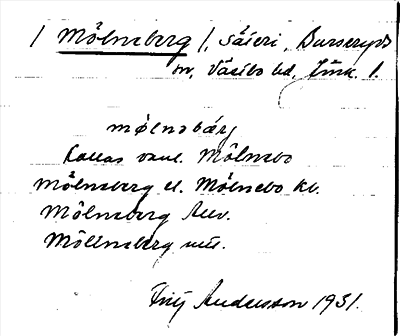 / Mölneberg /, Säteri, Burseryds
sn, Västbo hd, Jönk. l.
mølnəbærj
Kallas vanl. Mölnebo
Mölneberg el. Mölnebo kb.
Mölneberg
Möllneberg
Andersson 1931.